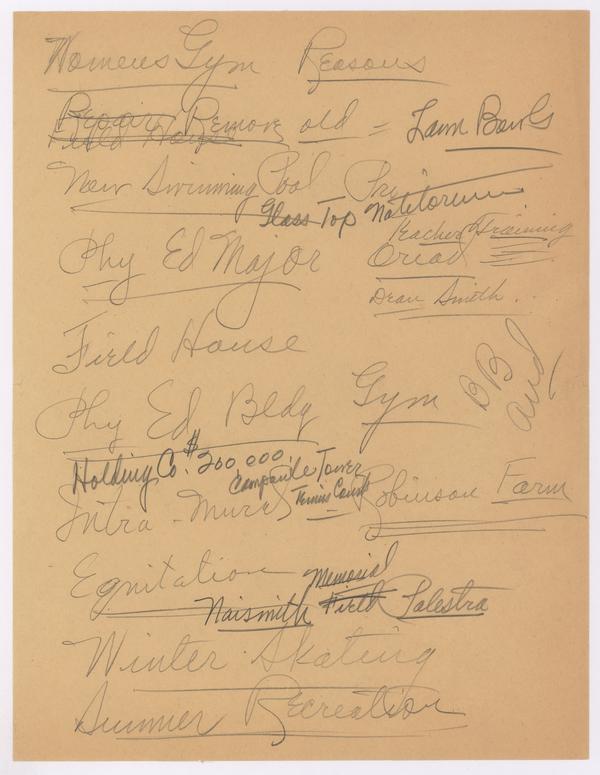 Womens Gym Reasons
Repair Remove old = Lawn Bowls
Field House
New Swimming Pool Phy
Glass Top Natitorium
Teacher Training
Phy Ed Major Oread
Dean Smith.
Field House
BB and
Phy Ed Bldg Gym
Holding Co. $200,000.
Campanile Tower
Tennis Court
Intra-Mural Robinson Farm
Equitation Memorial
Naismith Field Palestra
Winter Skating
Summer Recreation